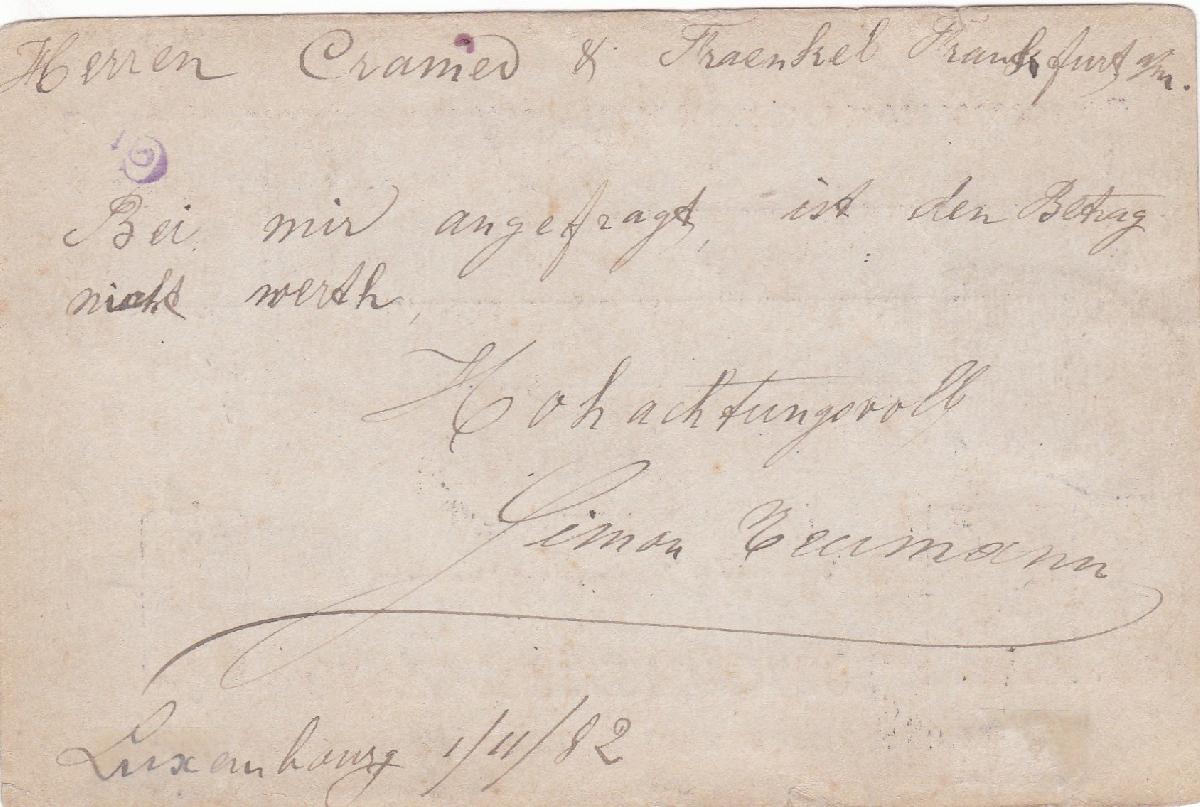 Herren Cramer & Fraenkel Frankfurt a/m.
Bei mir angefragt, ist den Betrag
nicht werth,
Hohachtungsvoll
Simon Neumann
Luxembourg 1/11/82